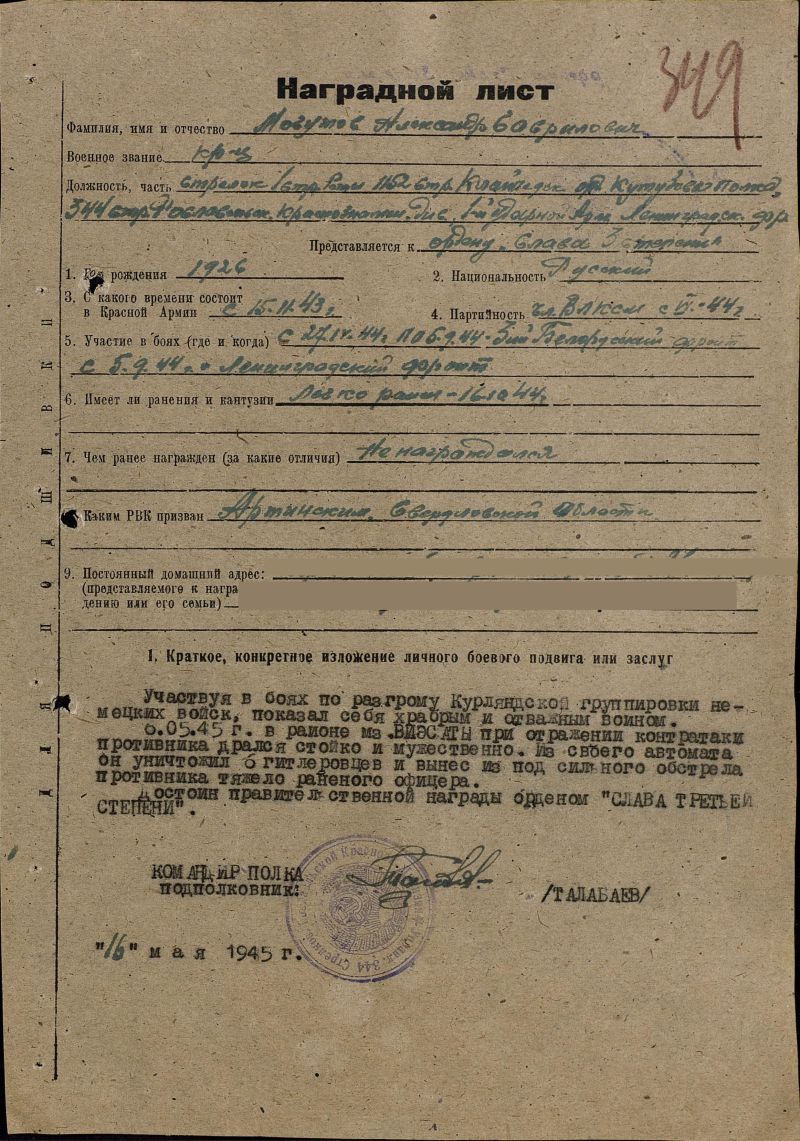 349
Наградной лист
Фамилия, имя и отчество Могутов Александр Гаврилович
Военное звание кр-ц
Должность, часть стрелок 1 стр. роты 1152 стр. Кутузова полка
344 стр. Рославльск. Краснознамен. Див. 1-й Ударной Арм. Ленинградск. фр
Представляется к ордену "Слава 3 степени"
1. Год рождения 1926
2. Национальность Русский
3. С какого времени состоит
в Красной Армии с 15.11.43 г.
4. Партийность чл. ВЛКСМ с -44 г
5. Участие в боях (где и когда) с 27.IV.44 г. по 5.9.44 - 3ий Белорусский фронт
с 5.9.44 г. Ленинградский фронт
6. Имеет ли ранения и кантузии Легко ранен - 16.10.44 г.
7. Чем ранее награжден (за какие отличия) Не награждался
Каким РВК призван Артинским Свердловской области
9. Постоянный домашний адрес:
(представляемого к награ
дению или его семьи)
I. Краткое, конкретное изложение личного боевого подвига или заслуг
Участвуя в боях по разгрому Курляндской группировки не-
мецких войск, показал себя храбрым и отважным воином.
6.05.45 г. в районе мз. ВИЭСАТЫ при отражении контратаки
противника дрался стойко и мужественно. Из своего автомата
он уничтожил 6 гитлеровцев и вынес из под сильного обстрела
противника тяжело раненого офицера.
Достоин правительственной награды орденом "СЛАВА ТРЕТЬЕЙ
СТЕПЕНИ".
КОМАНДИР ПОЛКА
ПОДПОЛКОВНИК:
/ТАЛАБАЕВ/
"16" мая 1945 г.